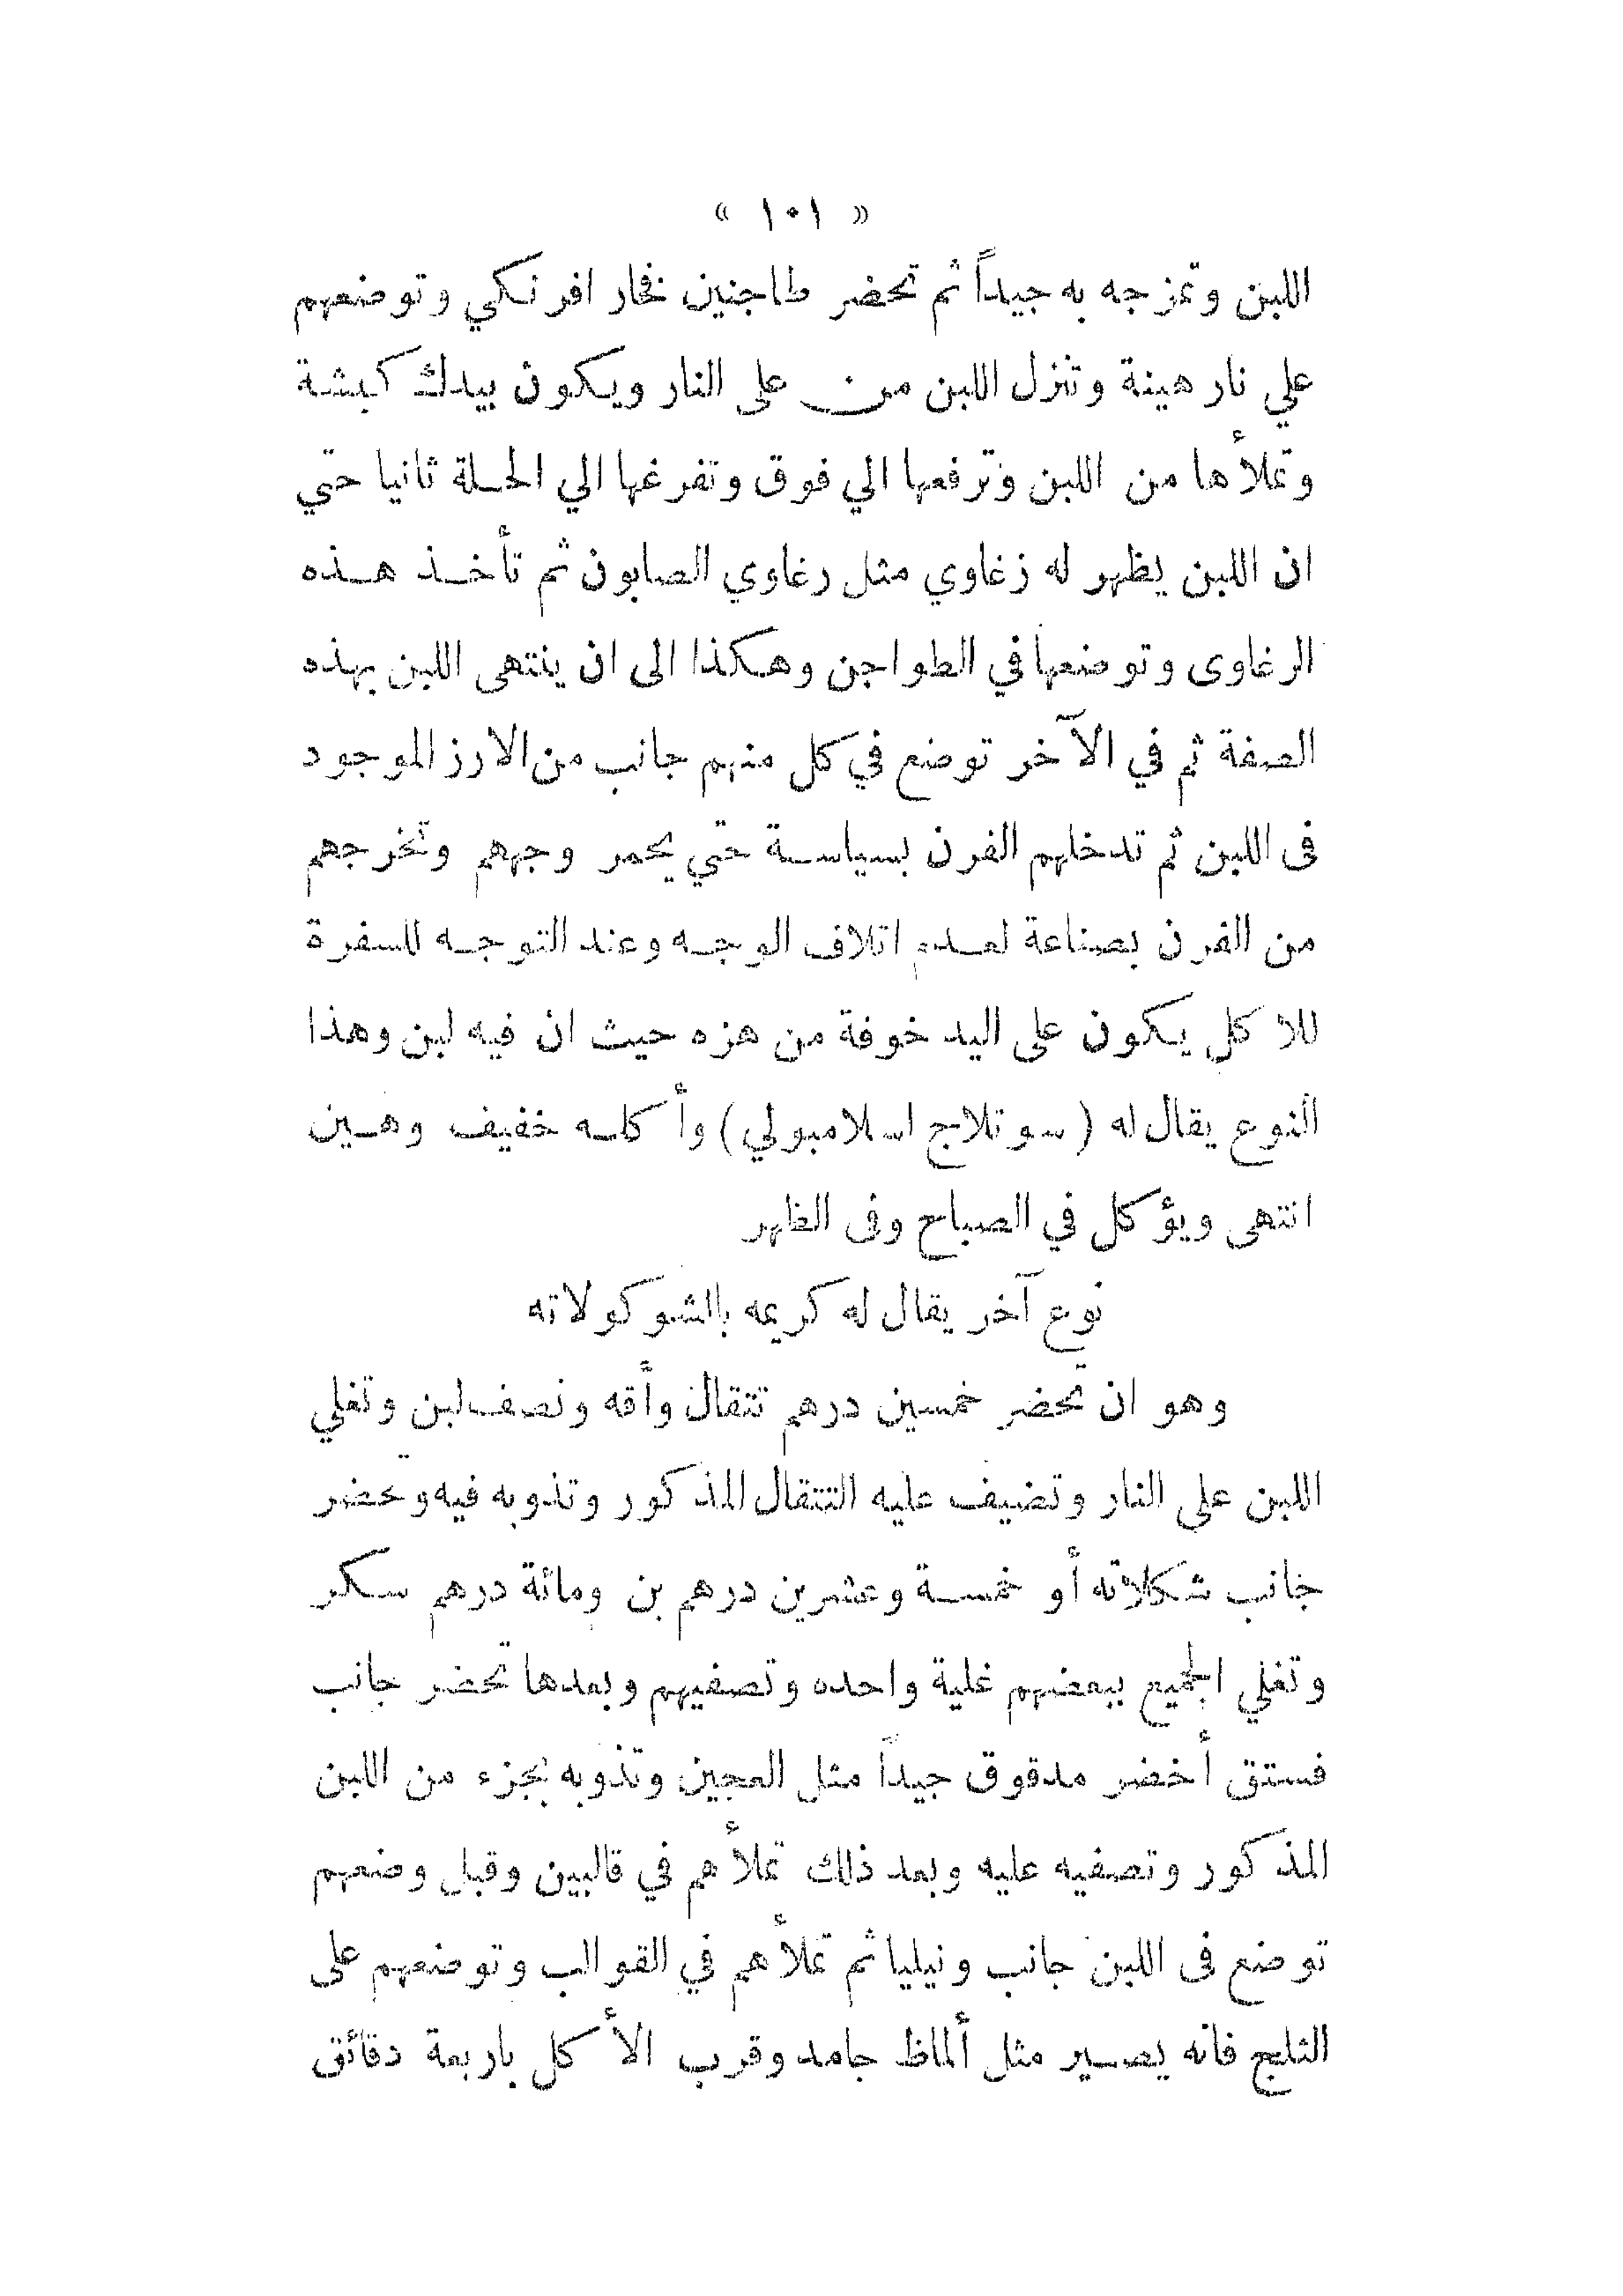 « ١٠١ »
اللبن وتمزجه به جيداً ثم تحضر طاجنين فخار افرنكي وتوضعهم
علي نار هينة وتنزل اللبن من على النار ويكون بيدك كبشة
وتملأها من اللبن وترفعها الي فوق وتفرغها الي الحلة ثانيا حتي
ان اللبن يظهر له زغاوي مثل رغاوي الصابون ثم تأخذ هذه
الرغاوى وتوضعها في الطواجن وهكذا الى ان ينتهى اللبن بهذه
الصفة ثم في الآخر توضع في كل منهم جانب من الارز الموجود
فى اللبن ثم تدخلهم الفرن بسياسة حتي يحمر وجههم وتخرجهم
من الفرن بصناعة لعدم اتلاف الوجه وعند التوجه للسفرة
للاكل يكون على اليد خوفة من هزه حيث ان فيه لبن وهذا
النوع يقال له (سوتلاج اسلامبولي) وأكله خفيف وهين
انتهى ويؤكل في الصباح وفى الظهر
نوع آخر يقال له كريمه بالشوكولاته
وهو ان تحضر خمسين درهم تتقال وأقه ونصف لبن وتغلي
اللبن على النار وتضيف عليه التتقال المذكور وتذوبه فيه وتحضر
جانب شكلاته أو خمسة وعشرين درهم بن ومائة درهم سكر
وتغلي الجميع ببعضهم غلية واحده وتصفيهم وبعدها تحضر جانب
فستق أخضر مدقوق جيداً مثل العجين وتذوبه بجزء من اللبن
المذكور وتصفيه عليه وبعد ذلك تملأهم في قالبين وقبل وضعهم
توضع فى اللبن جانب ونيليا ثم تملأهم في القوالب وتوضعهم على
الثلج فانه يصير مثل ألماظ جامد وقرب الأكل باربعة دقائق